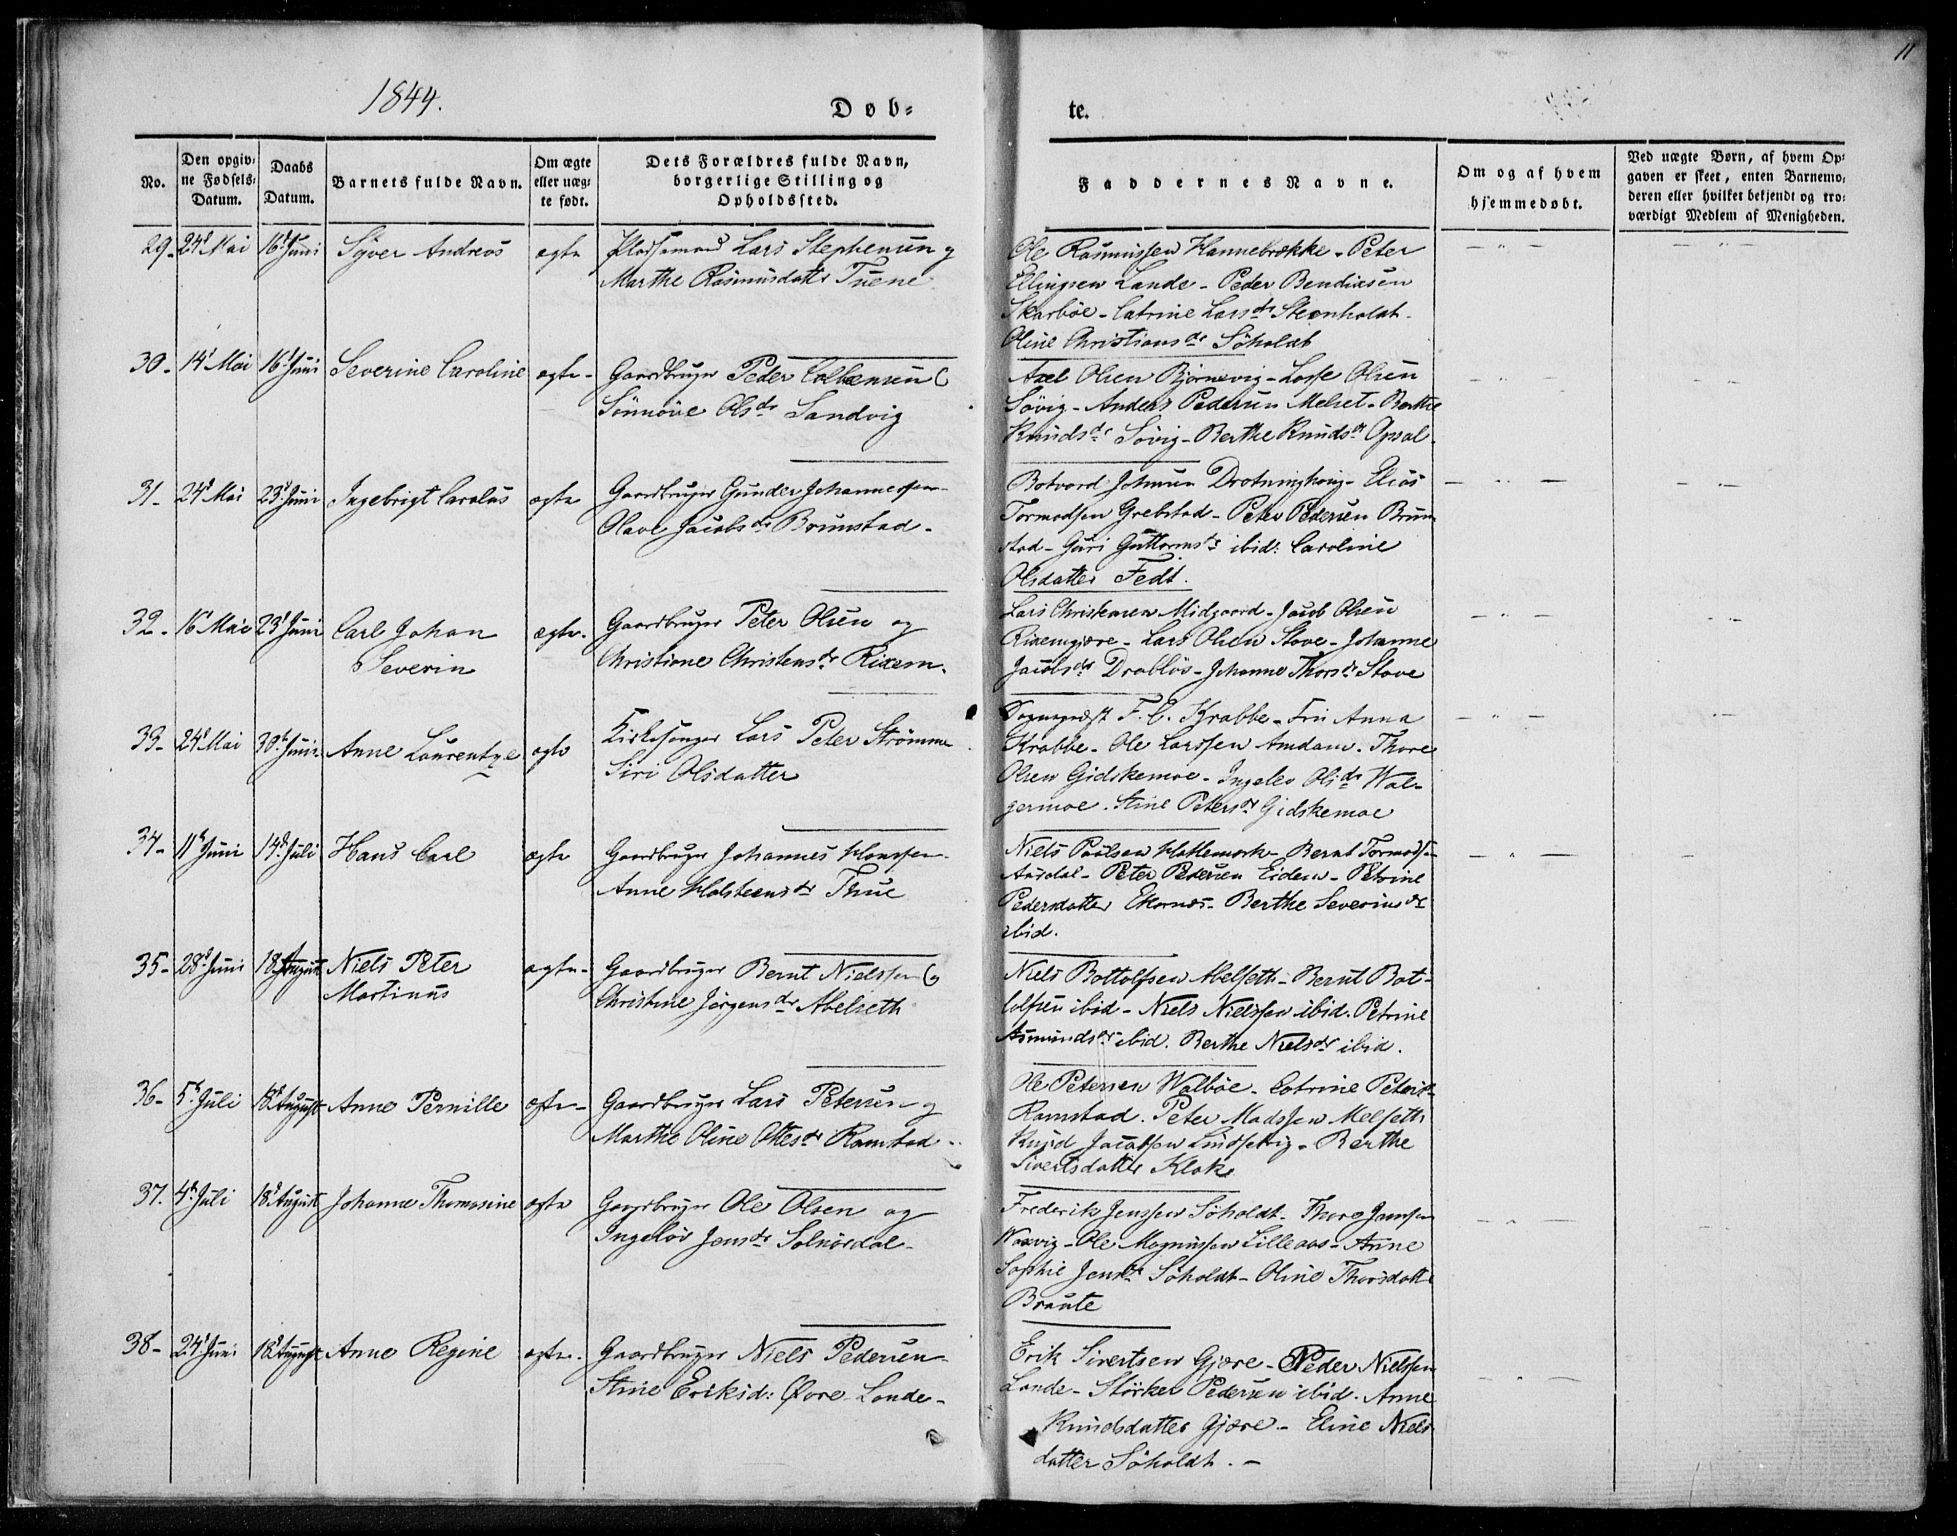 11
1844.
Døb=
te.
No.
Den opgiv=
ne Fødsels=
Datum.
Daabs
Datum.
Barnets fulde Navn.
Om ægte
eller uæg=
te født.
Dets Forældres fulde Navn,
borgerlige Stilling og
Opholdssted.
Faddernes Navne.
Om og af hvem
hjemmedøbt.
Ved uægte Børn, af hvem Op=
gaven er skeet, enten Barnemo=
deren eller hvilket bekjendt og tro=
værdigt Medlem af Menigheden.
29- 24d Mai 16d Juni Syver Andreas ægte Pladsmand Lars Stephensen og
Marthe Rasmusdatter Tuene
Ole Rasmussen Hannebrekke - Peter
Ellingsen Lande - Peder Bendixsen
Skarbøe - Catrine Larsdr Steenholdt -
Oline Christiansdr Søholdt
30- 14d Mai 16d Juni Severine Caroline ægte - Gaardbruger Peder Colbensen &
Sønnøve Olsdr Sandvig
Axel Olsen Bjørnevig - Lasse Olsen
Søvig - Anders Pedersen Melset - Berthe
Knudsdr Søvig - Berthe Knudsdr Opsal -
31- 24d Mai 23d Juni Ingebrigt Carolus ægte Gaardbruger Gunder Johannessen
Olave Jacobsdr Brunstad -
Botvard Johnsen Drotninghoug - Elias
Tormodsen Grebstad - Peter Pedersen Brun
stad - Guri Guttormsdr ibid: Caroline
Olsdatter Fedt.
32- 16d Mai 23d Juni Carl Johan
Severin
ægte - Gaardbruger Peter Olsen og
Christiane Christensdr Rixem -
Lars Christensen Midgaard - Jacob Olsen
Rixemgjære - Lars Olsen Stave - Johanne
Jacobsdr Drabløs - Johanne Thorsdr Stave
33- 24d Mai 30te Juni Anne Laurentze ægte Kirkesanger Lars Peter Strømme
Siri Olsdatter
Sognepræst F. C. Krabbe - Fru Anna
Krabbe - Ole Larssen Amdam - Thore
Olsen Gidskemoe - Ingelev Olsdr Wal-
germoe. Stine Petersdr Gidskemoe
34- 11te Juni 14d Juli Hans Carl ægte Gaardbruger Johannes Hanssen
Anne Holsteensdr Thue
Niels Paulsen Hatlemark - Bernt Tormodsen
Aursdal - Peter Pedersen Eidem - Petrine
Pedersdatter Ekornes - Berthe Severinsdr
ibid.
35- 28d Juni 18 August Niels Peter
Martinus
ægte - Gaardbruger Bernt Nielssen &
Christine Jørgensdr Abelseth
Niels Bottolfsen Abelseth - Bernt Bot-
tolfsen ibid - Niels Nielssen ibid. Petrine
Asmundsdr ibid. Berthe Nielsdr ibid.
36- 5te Juli 18d August Anne Pernille ægte - Gaardbruger Lars Petersen og
Marthe Oline Ottesdr Ramstad -
Ole Petersen Walbøe - Catrine Petersdr
Ramstad. Peter Madssen Melseth
Knud Jacobsen Lindsetvig - Berthe
Sivertsdatter Klok
37. 4de Juli 18d August Johanne Thomasine ægte Gaardbruger Ole Olsen og
Ingeløv Jensdr Solnørdal -
Frederik Jenssen Søholdt - Thore Jonsen
Waxvig - Ole Magnussen Lilleaas - Anne
Sophie Jensdr Søholdt - Oline Thorsdatter
Braute
38- 24d Juni 18d August Anne Regine ægte - Gaardbruger Niels Pedersen
Stine Eriksd: Øvre Lande -
Erik Sivertsen Gjære - Peder Nielsen
Lande - Størker Pedersen ibid. Anne
Knudsdatter Gjære - Eline Niels
datter Søholdt. -